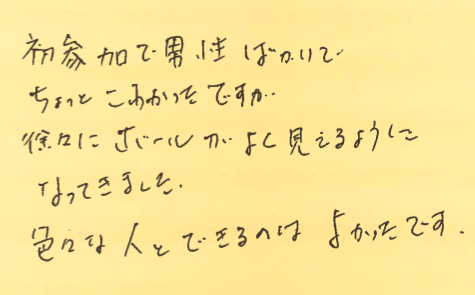 初参加で男性ばかりで
ちょっとこわかったですが
徐々にボールがよく見えるように
なってきました.
色々な人とできるのはよかったです.